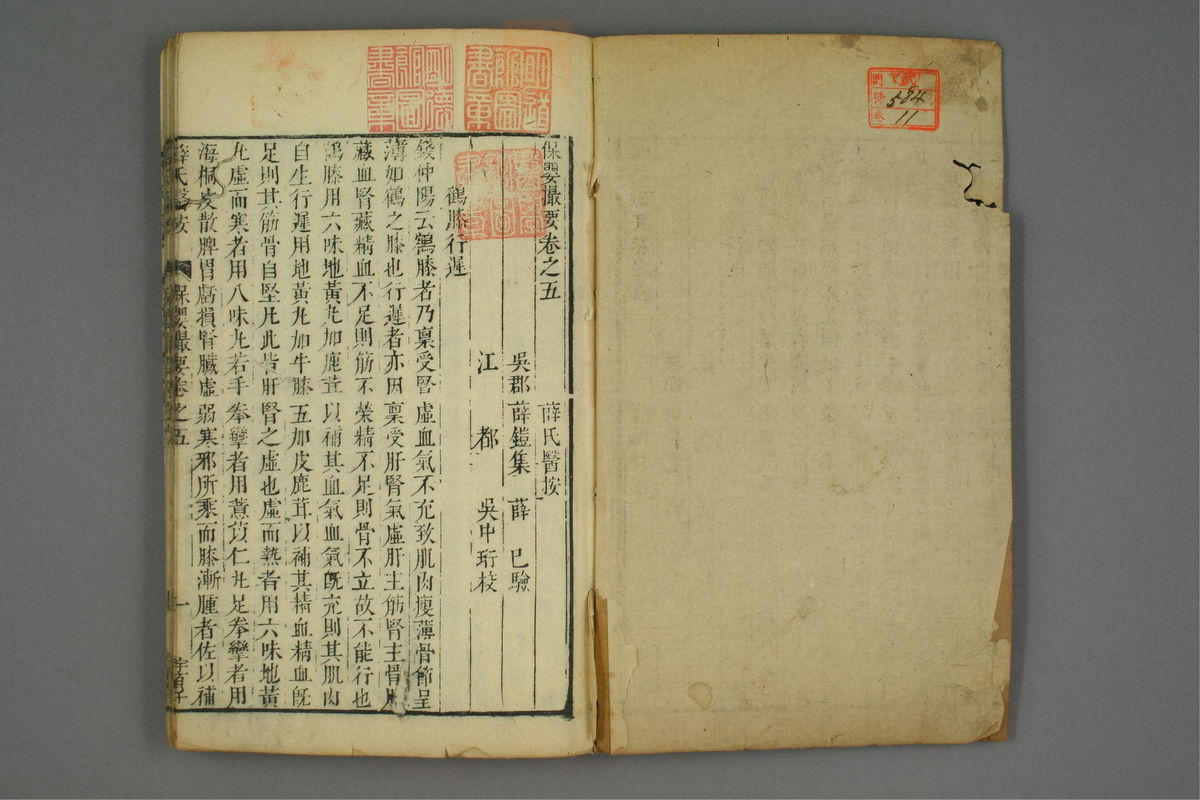 584
11
保嬰撮要卷之五 薛氏醫按
吳郡 薛鎧集 薛己驗
江都 吳中珩校
鶴膝行遲
錢仲陽云鶴膝者乃禀受腎虛血氣不充致肌肉瘦薄骨節呈
薄如鶴之膝也行遲者亦因禀受肝腎氣虛肝主筋腎主骨肝
藏血腎藏精血不足則筋不榮精不足則骨不立故不能行也
鶴膝用六味地黃丸加鹿茸以補其血氣血氣既充則其肌肉
自生行遲用地黃丸加牛膝五加皮鹿茸以補其精血精血既
足則其筋骨自堅凡此皆肝腎之虛也虛而熱者用六味地黃
丸虛而寒者用八味丸若手拳攣者用薏苡仁丸足拳攣者用
海桐皮散脾胃虧損腎臟虛弱寒邪所乘而膝漸腫者佐以補
薛氏醫按 保嬰撮要卷之五 一